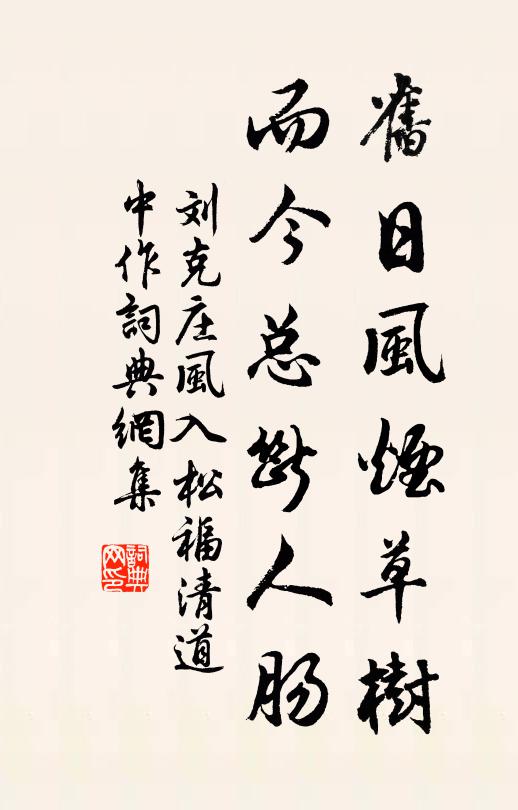 舊日風煙草樹
而今总斷人肠
刘克庄風入松福清道
中作詞典網集
詞典网印